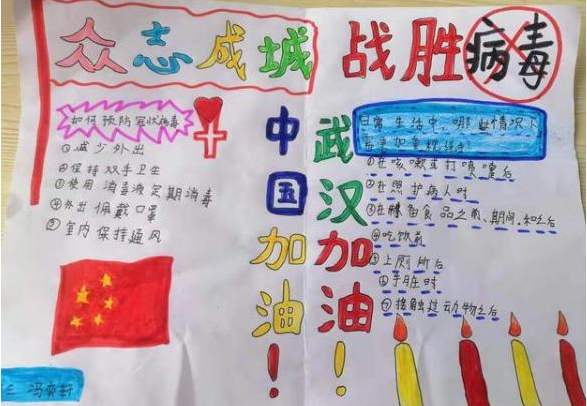 众志成城 战胜病毒
如何预防冠状病毒
①减少外出
②保持双手卫生
③使用消毒液定期消毒
④外出佩戴口罩
⑤室内保持通风
中国加油！
武汉加油！
日常生活中，哪些情况下
需要
①在咳嗽或打喷嚏后
②在照护病人时
③在准备食品之前、期间和之后
④吃饭前
⑤上厕所后
⑥手脏时
⑦接触过动物之后
三 冯